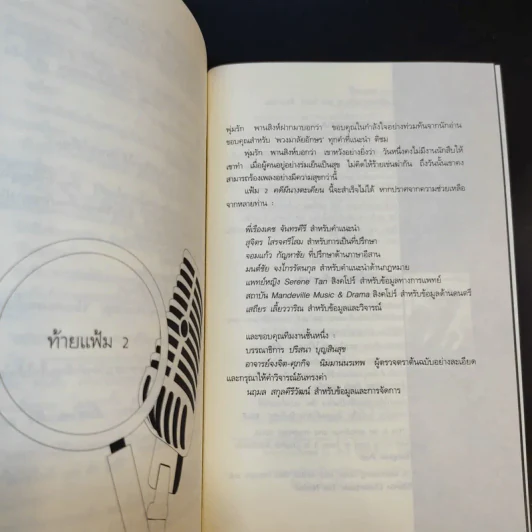 ท้ายแฟ้ม 2
พุ่มรัก พานสิงห์ฝากมาบอกว่า ขอบคุณในกำลังใจอย่างท่วมท้นจากนักอ่าน
ขอบคุณสำหรับ 'พวงมาลัยอักษร' ทุกคำที่แนะนำ ติชม
พุ่มรัก พานสิงห์บอกว่า เขาหวังอย่างยิ่งว่า วันหนึ่งคงไม่มีงานนักสืบให้
เขาทำ เมื่อผู้คนอยู่อย่างร่มเย็นเป็นสุข ไม่คิดให้ร้ายเข่นฆ่ากัน ถึงวันนั้นเขาคง
สามารถร้องเพลงอย่างมีความสุขกว่านี้
แฟ้ม 2 คดีผีนางตะเคียน นี้จะสำเร็จไม่ได้ หากปราศจากความช่วยเหลือ
จากหลายท่าน :
พี่เรืองเดช จันทรคีรี สำหรับคำแนะนำ
สุจิตร โสรจศรีโสม สำหรับการเป็นที่ปรึกษา
จอมแก้ว กัญหาชัย ที่ปรึกษาด้านภาษาอีสาน
มนต์ชัย จงไกรรัตนกุล สำหรับคำแนะนำด้านกฎหมาย
แพทย์หญิง Serene Tan สิงคโปร์ สำหรับข้อมูลทางการแพทย์
สถาบัน Mandeville Music & Drama สิงคโปร์ สำหรับข้อมูลด้านดนตรี
เสถียร เลี้ยววาริณ สำหรับข้อมูลและวิจารณ์
และขอบคุณทีมงานชั้นหนึ่ง :
บรรณาธิการ ปรีสนา บุญสินสุข
อาจารย์จงจิต-ศุภกิจ นิมมานนรเทพ ผู้ตรวจตราต้นฉบับอย่างละเอียด
และกรุณาให้คำวิจารณ์อันทรงค่า
นฤมล สกุลคีรีวัฒน์ สำหรับข้อมูลและการจัดการ